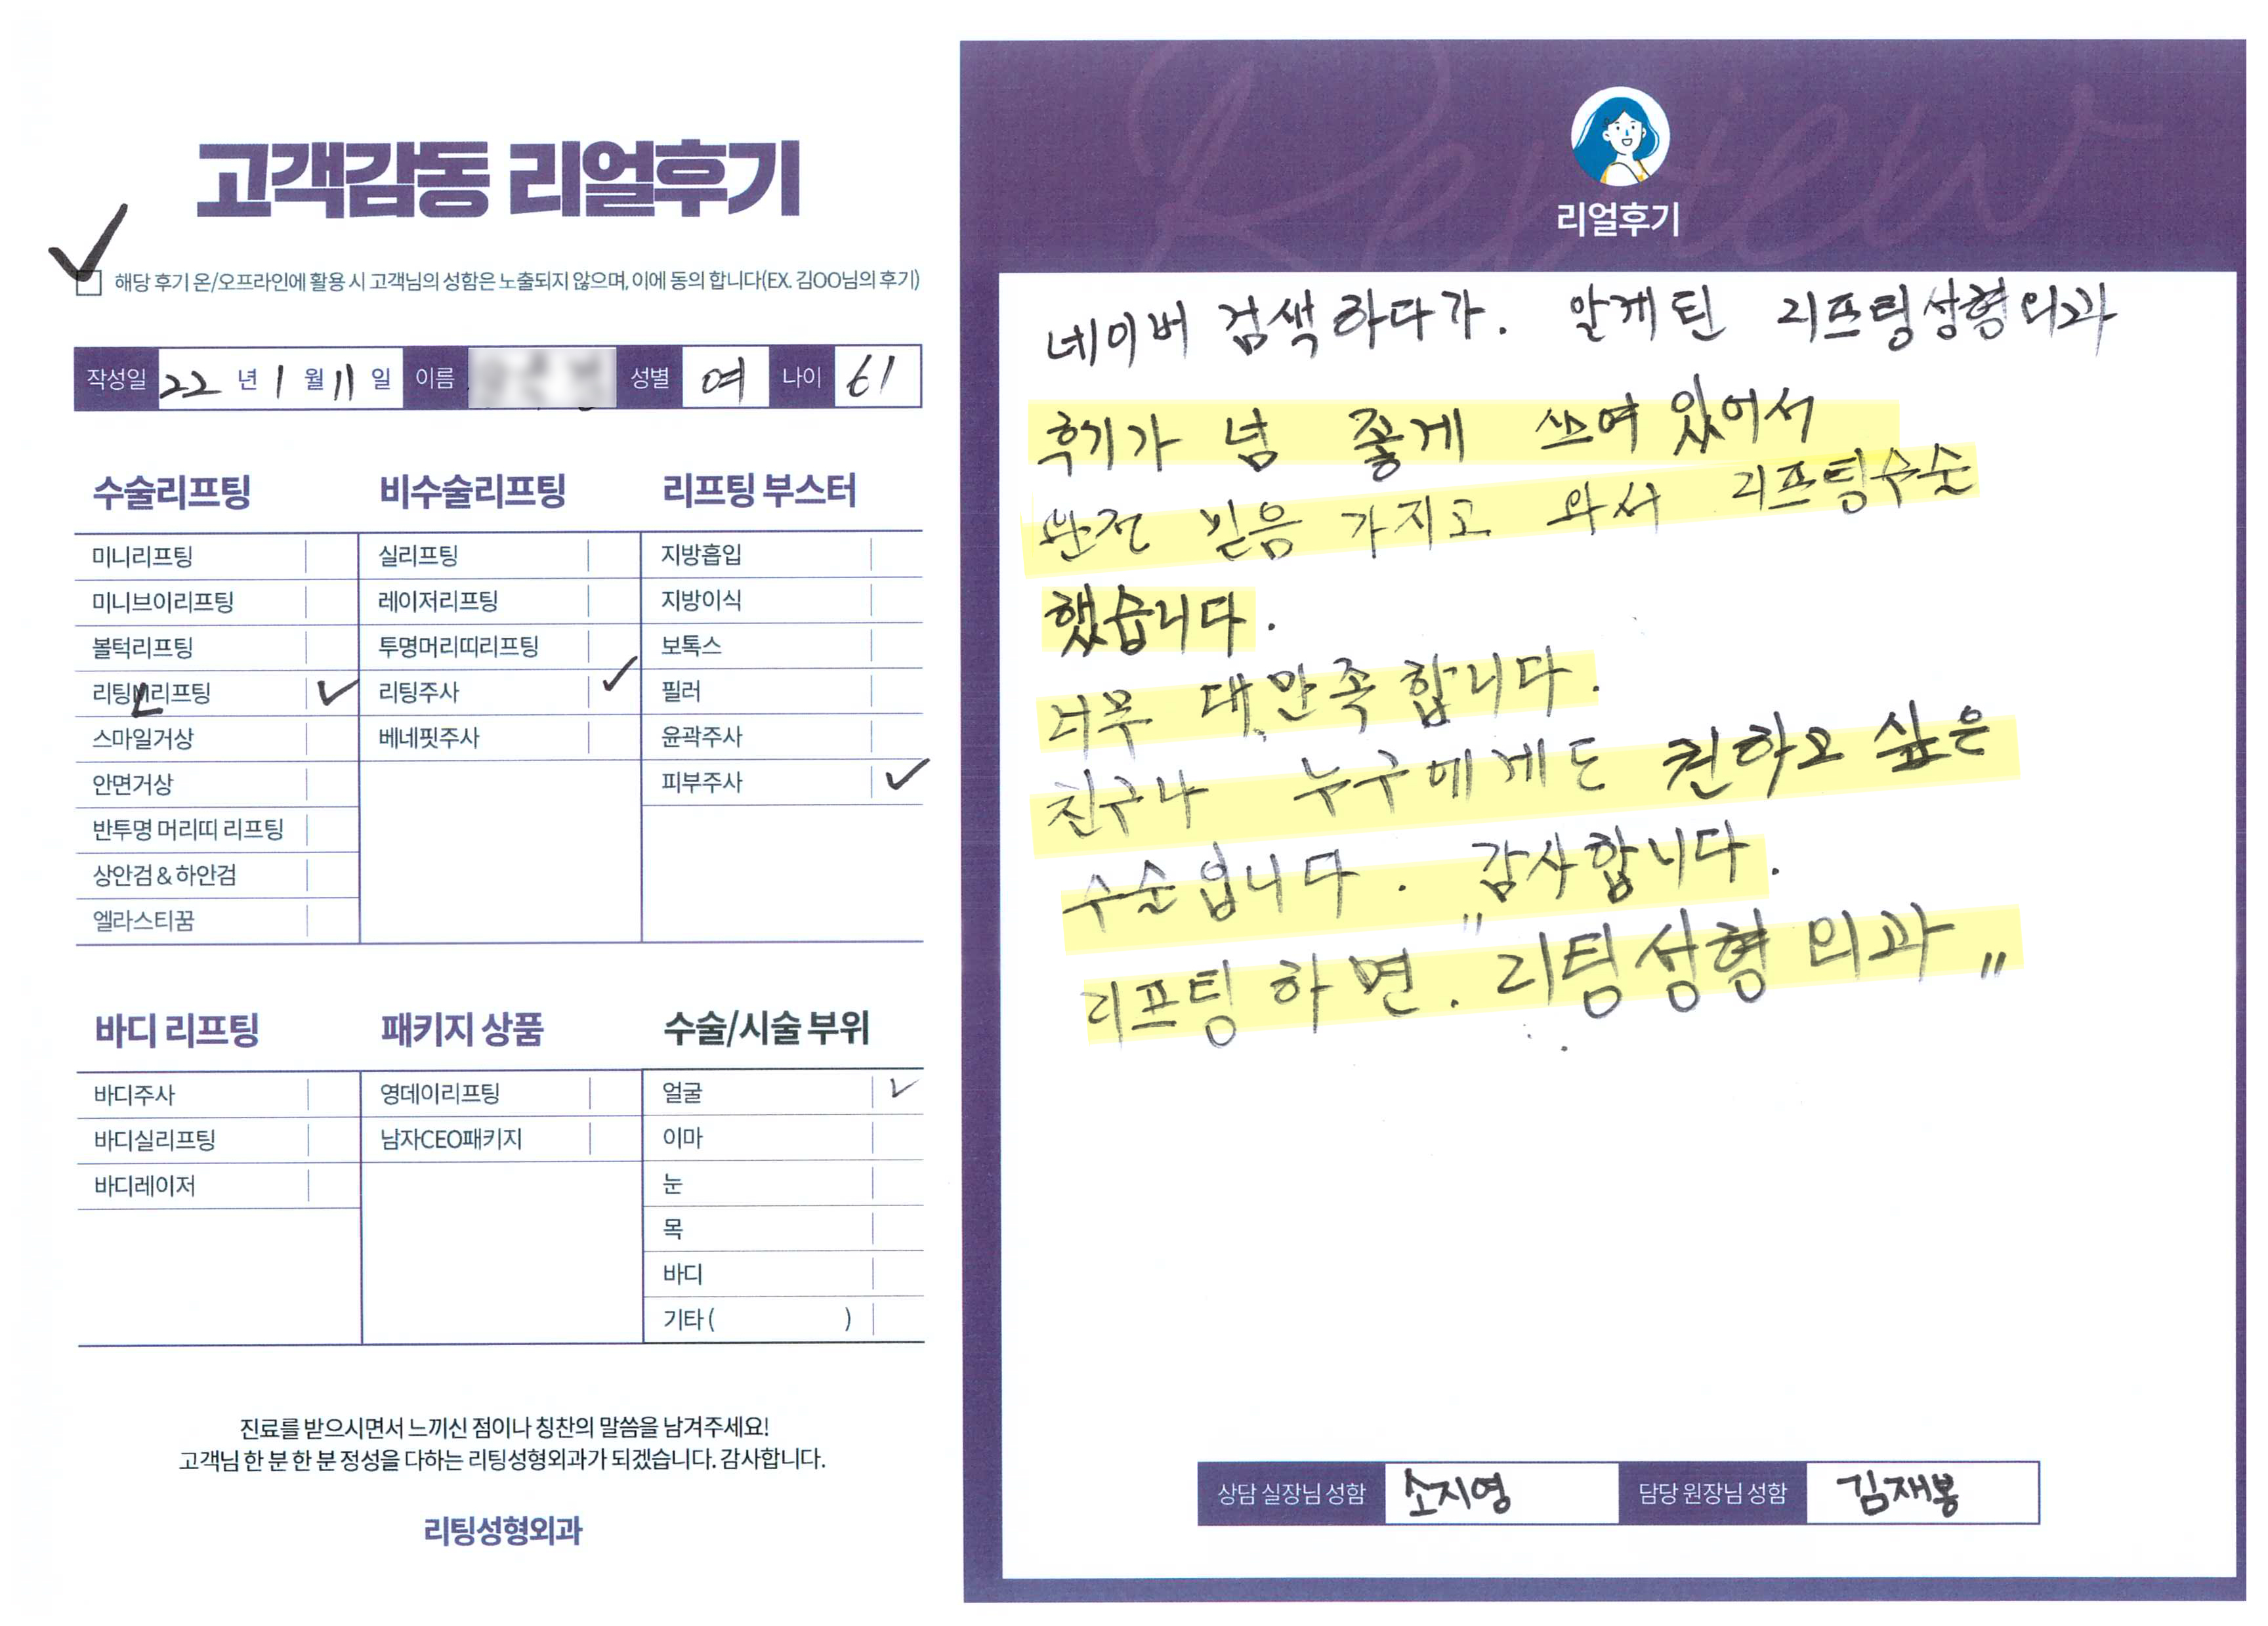 고객감동 리얼후기
해당 후기 온/오프라인에 활용 시 고객님의 성함은 노출되지 않으며, 이에 동의 합니다(EX. 김OO님의 후기)
작성일 22 년 1 월 11 일 이름 성별 여 나이 61
수술리프팅
미니리프팅
미니브이리프팅
볼턱리프팅
리팅L리프팅
스마일거상
안면거상
반투명 머리띠 리프팅
상안검 & 하안검
엘라스티꿈
비수술리프팅
실리프팅
레이저리프팅
투명머리띠리프팅
리팅주사
베네핏주사
리프팅 부스터
지방흡입
지방이식
보톡스
필러
윤곽주사
피부주사
바디 리프팅
바디주사
바디실리프팅
바디레이저
패키지 상품
영데이리프팅
남자CEO패키지
수술/시술 부위
얼굴
이마
눈
목
바디
기타 ( )
진료를 받으시면서 느끼신 점이나 칭찬의 말씀을 남겨주세요!
고객님 한 분 한 분 정성을 다하는 리팅성형외과가 되겠습니다. 감사합니다.
리팅성형외과
Review
리얼후기
네이버 검색하다가. 알게된 리프팅성형외과
후기가 넘 좋게 쓰여 있어서
완전 믿음 가지고 와서 리프팅수술
했습니다.
너무 대만족합니다.
친구나 누구에게도 권하고 싶은
수술입니다. 감사합니다.
리프팅 하면. "리팅성형외과"
상담 실장님 성함 소지영 담당 원장님 성함 김재봉